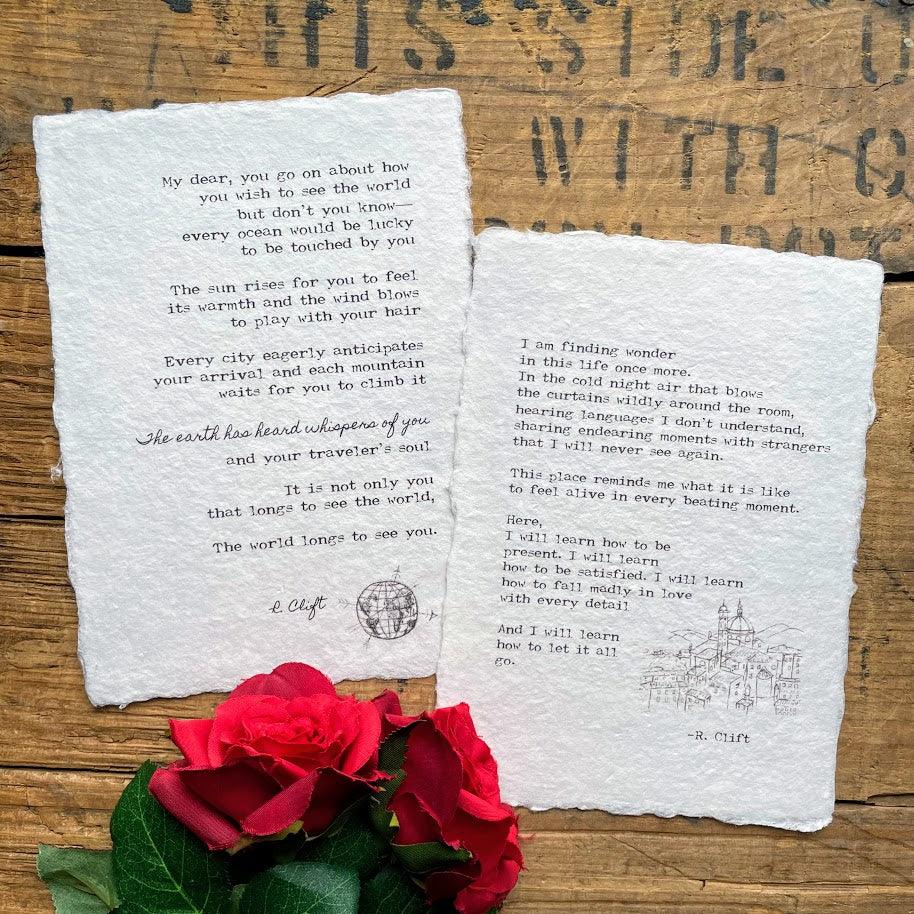 THIS SIDE U
WITH C
My dear, you go on about how
you wish to see the world
but don't you know—
every ocean would be lucky
to be touched by you
The sun rises for you to feel
its warmth and the wind blows
to play with your hair
Every city eagerly anticipates
your arrival and each mountain
waits for you to climb it
The earth has heard whispers of you
and your traveler's soul
It is not only you
that longs to see the world,
The world longs to see you.
R. Clift
I am finding wonder
in this life once more.
In the cold night air that blows
the curtains wildly around the room,
hearing languages I don't understand,
sharing endearing moments with strangers
that I will never see again.
This place reminds me what it is like
to feel alive in every beating moment.
Here,
I will learn how to be
present. I will learn
how to be satisfied. I will learn
how to fall madly in love
with every detail
And I will learn
how to let it all
go.
-R. Clift